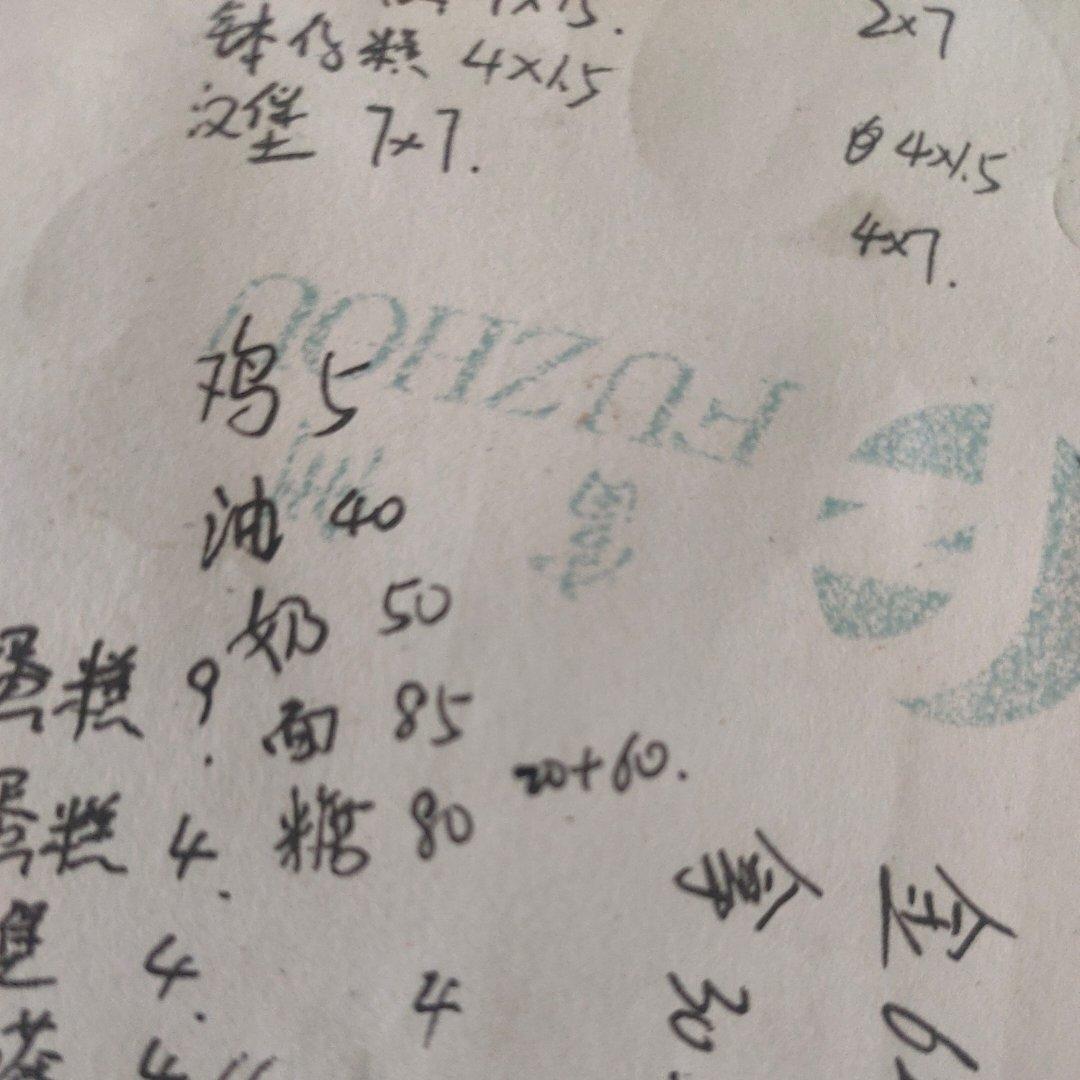 钵仔糕 4×1.5
汉堡 7×7.
2×7
4×1.5
4×7.
FUZHOU
鸡 5
油 40
奶 50
蛋糕 9.
面 85
20+60.
蛋糕 4.
糖 80
4.
4
4
拿 30
金 6